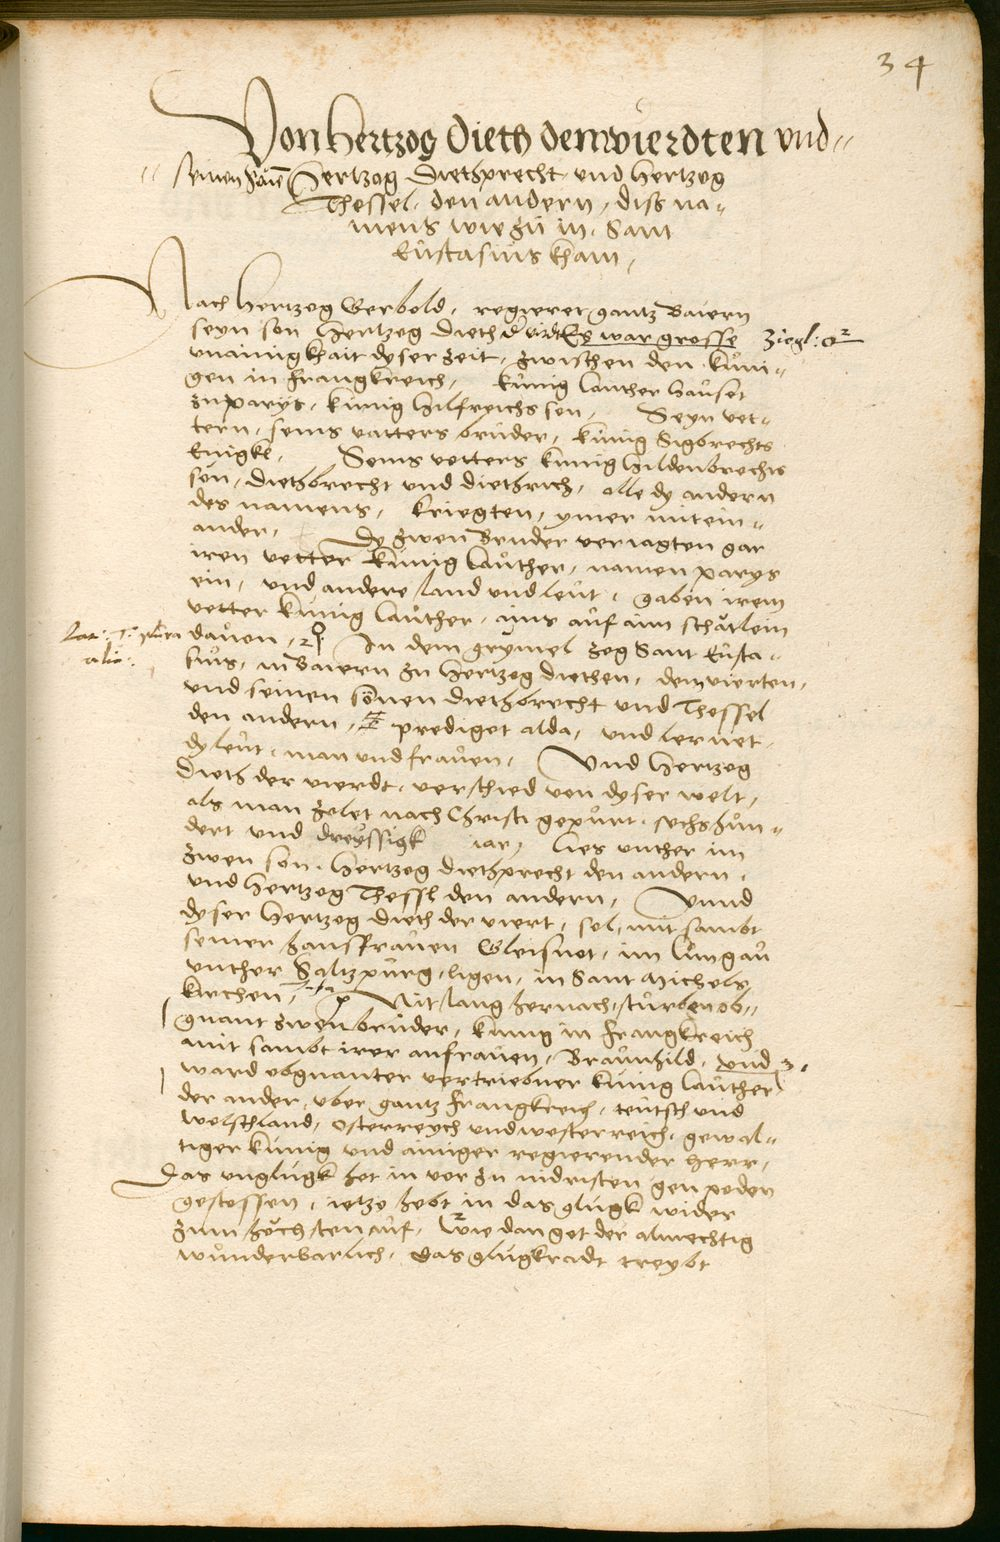 34
Von Hertzog Dieth dem vierdten vnd
seinen Hertzog Diethprecht vnd Hertzog
Thessel den andern, diss na-
mens wie zu in Sant
Eustasius kham,
Nach Hertzog Gerbold, regieret gantz Baiern
seyn son Hertzog Dieth Es war grosse Ziegl:
vnainigkhait dyser zeit, zwischen den kuni-
gen in Frangkreich, kunig Lauther hauset
zu parys, kunig Hilfreichs son, Seyn vet-
tern, seins vatters bruder, kunig Sigbrechts
Enigkl, Seins vetters kunig Hildenbrechts
sün, Diethbrecht und Diethrich, alle dy andern
des namens, kriegten, ymer mitein-
ander, Dy zwen Bruder veriagten gar
iren vetter kunig Lauther, namen parys
ein, vnd andere land vnd leut, gaben irem
vetter kunig Lauther, auf ain
dauon, In dem grymel zog Sant Eusta-
sius, in Baiern zu Hertzog Diethen, dem vierten,
vnd seinen sönen Diethbrecht und Thessel
den andern, prediget alda, vnd lernet
dy leut, man vnd frauen, Vnd Hertzog
Dieth der vierdt, verschied von dyser welt,
als man zelet nach Christi gepurt, sechshun-
dert vnd dreyssigk iar, lies vnther im
zwen son, Hertzog Diethprecht den andern,
vnd Hertzog Thessl den andern, Vnnd
dyser Hertzog Dieth der viert, sol, mit sambt
seiner hausfrauen Gleisnot, im
vnther Saltzpurg, ligen, in Sant Michels
kirchen, Nit lang hernach, sturben ob-
gnant zwen bruder, kunig in Frangkreich
mit sambt irer anfrauen, Braunhild, vnd
ward obgnanter vertribner kunig Lauther
der ander, vber gantz Frangkreich, teutsch vnd
welschland, osterreych vnd westerreich, gewal-
tiger kunig vnd ainiger regierender herr,
Das vnglugk het in vor zu nidristen gen poden
gestossen, ietzo hebt in das glugk wider
zum höchsten auf, Wie dan got der almechtig
wunderbarlich, das glugkradt treybt